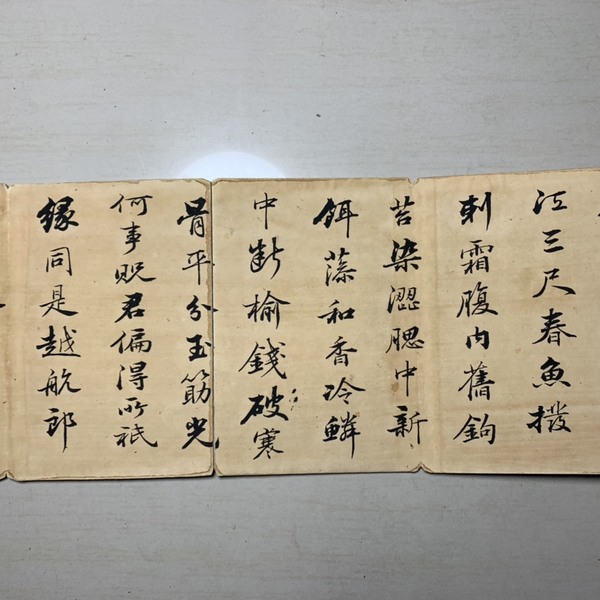 江三尺春魚撥
剌霜腹内舊鉤
苔染澀腮中新
餌藻和香冷鱗
中斷榆錢破寒
骨平分玉筯光
何事貺君偏得所祇
緣同是越航郎